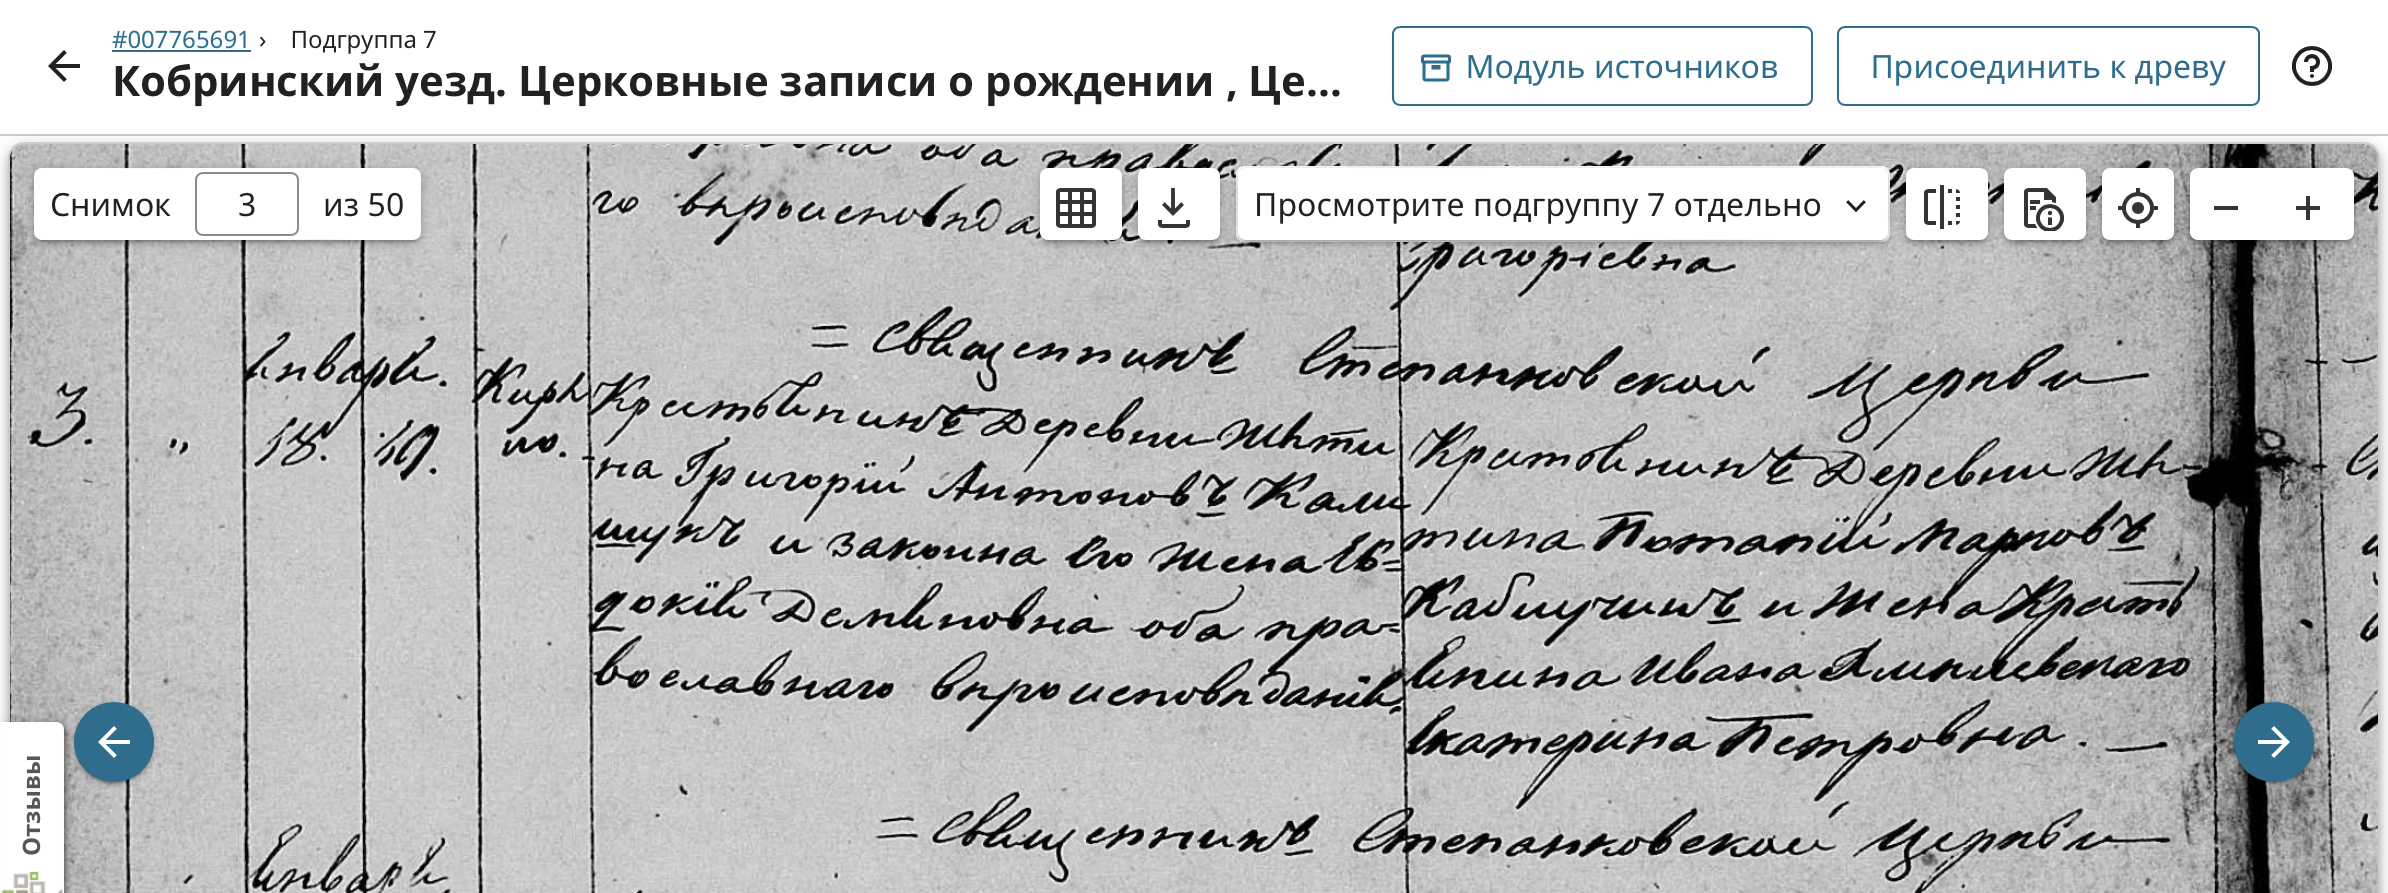 #007765691 › Подгруппа 7
Кобринский уезд. Церковные записи о рождении , Це...
Модуль источников
Присоединить к древу
Снимок 3 из 50
Просмотрите подгруппу 7 отдельно
го вѣроисповѣда
Григоріевна
= Священникъ Степанковской Церкви
Января.
3. „ 18. 19. Кири
ло.
Крестьянинъ Деревни Жѣти
на Григорій Антоновъ Кали
шукъ и законна его жена Ев=
докія Демяновна оба пра=
вославнаго вѣроисповѣданія.
Крестьянинъ Деревни Жѣ-
тина Потапій Марковъ
и жена Кресть
янина Ивана
Екатерина Петровна. —
= Священникъ Степанковской Церкви
Января
Отзывы